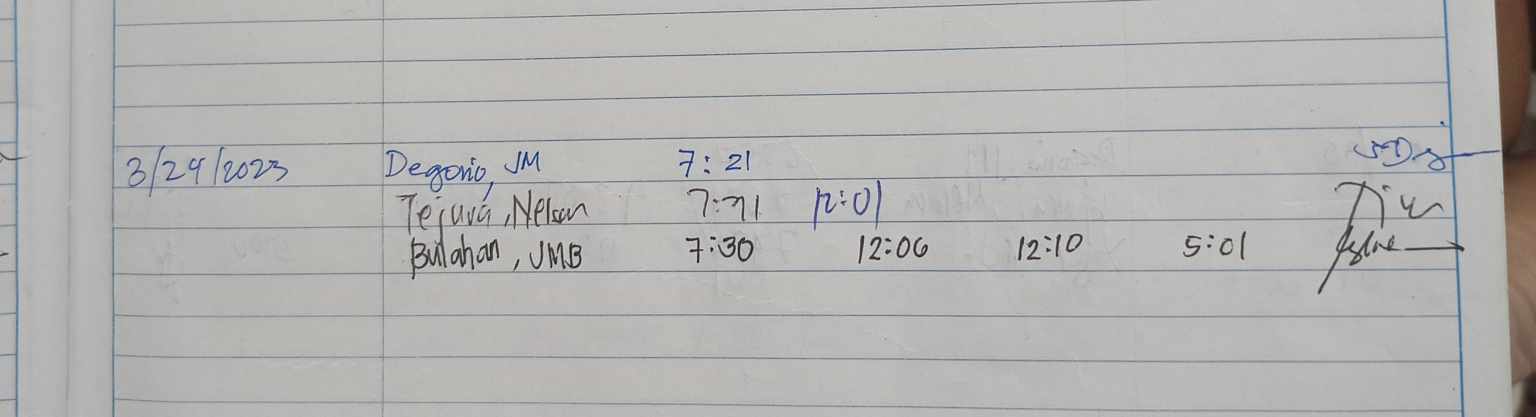 3/24/2023 Degorio, JM 7:21
Tejuva, Nelson 7:21 12:01
Bulahan, JMB 7:30 12:06 12:10 5:01